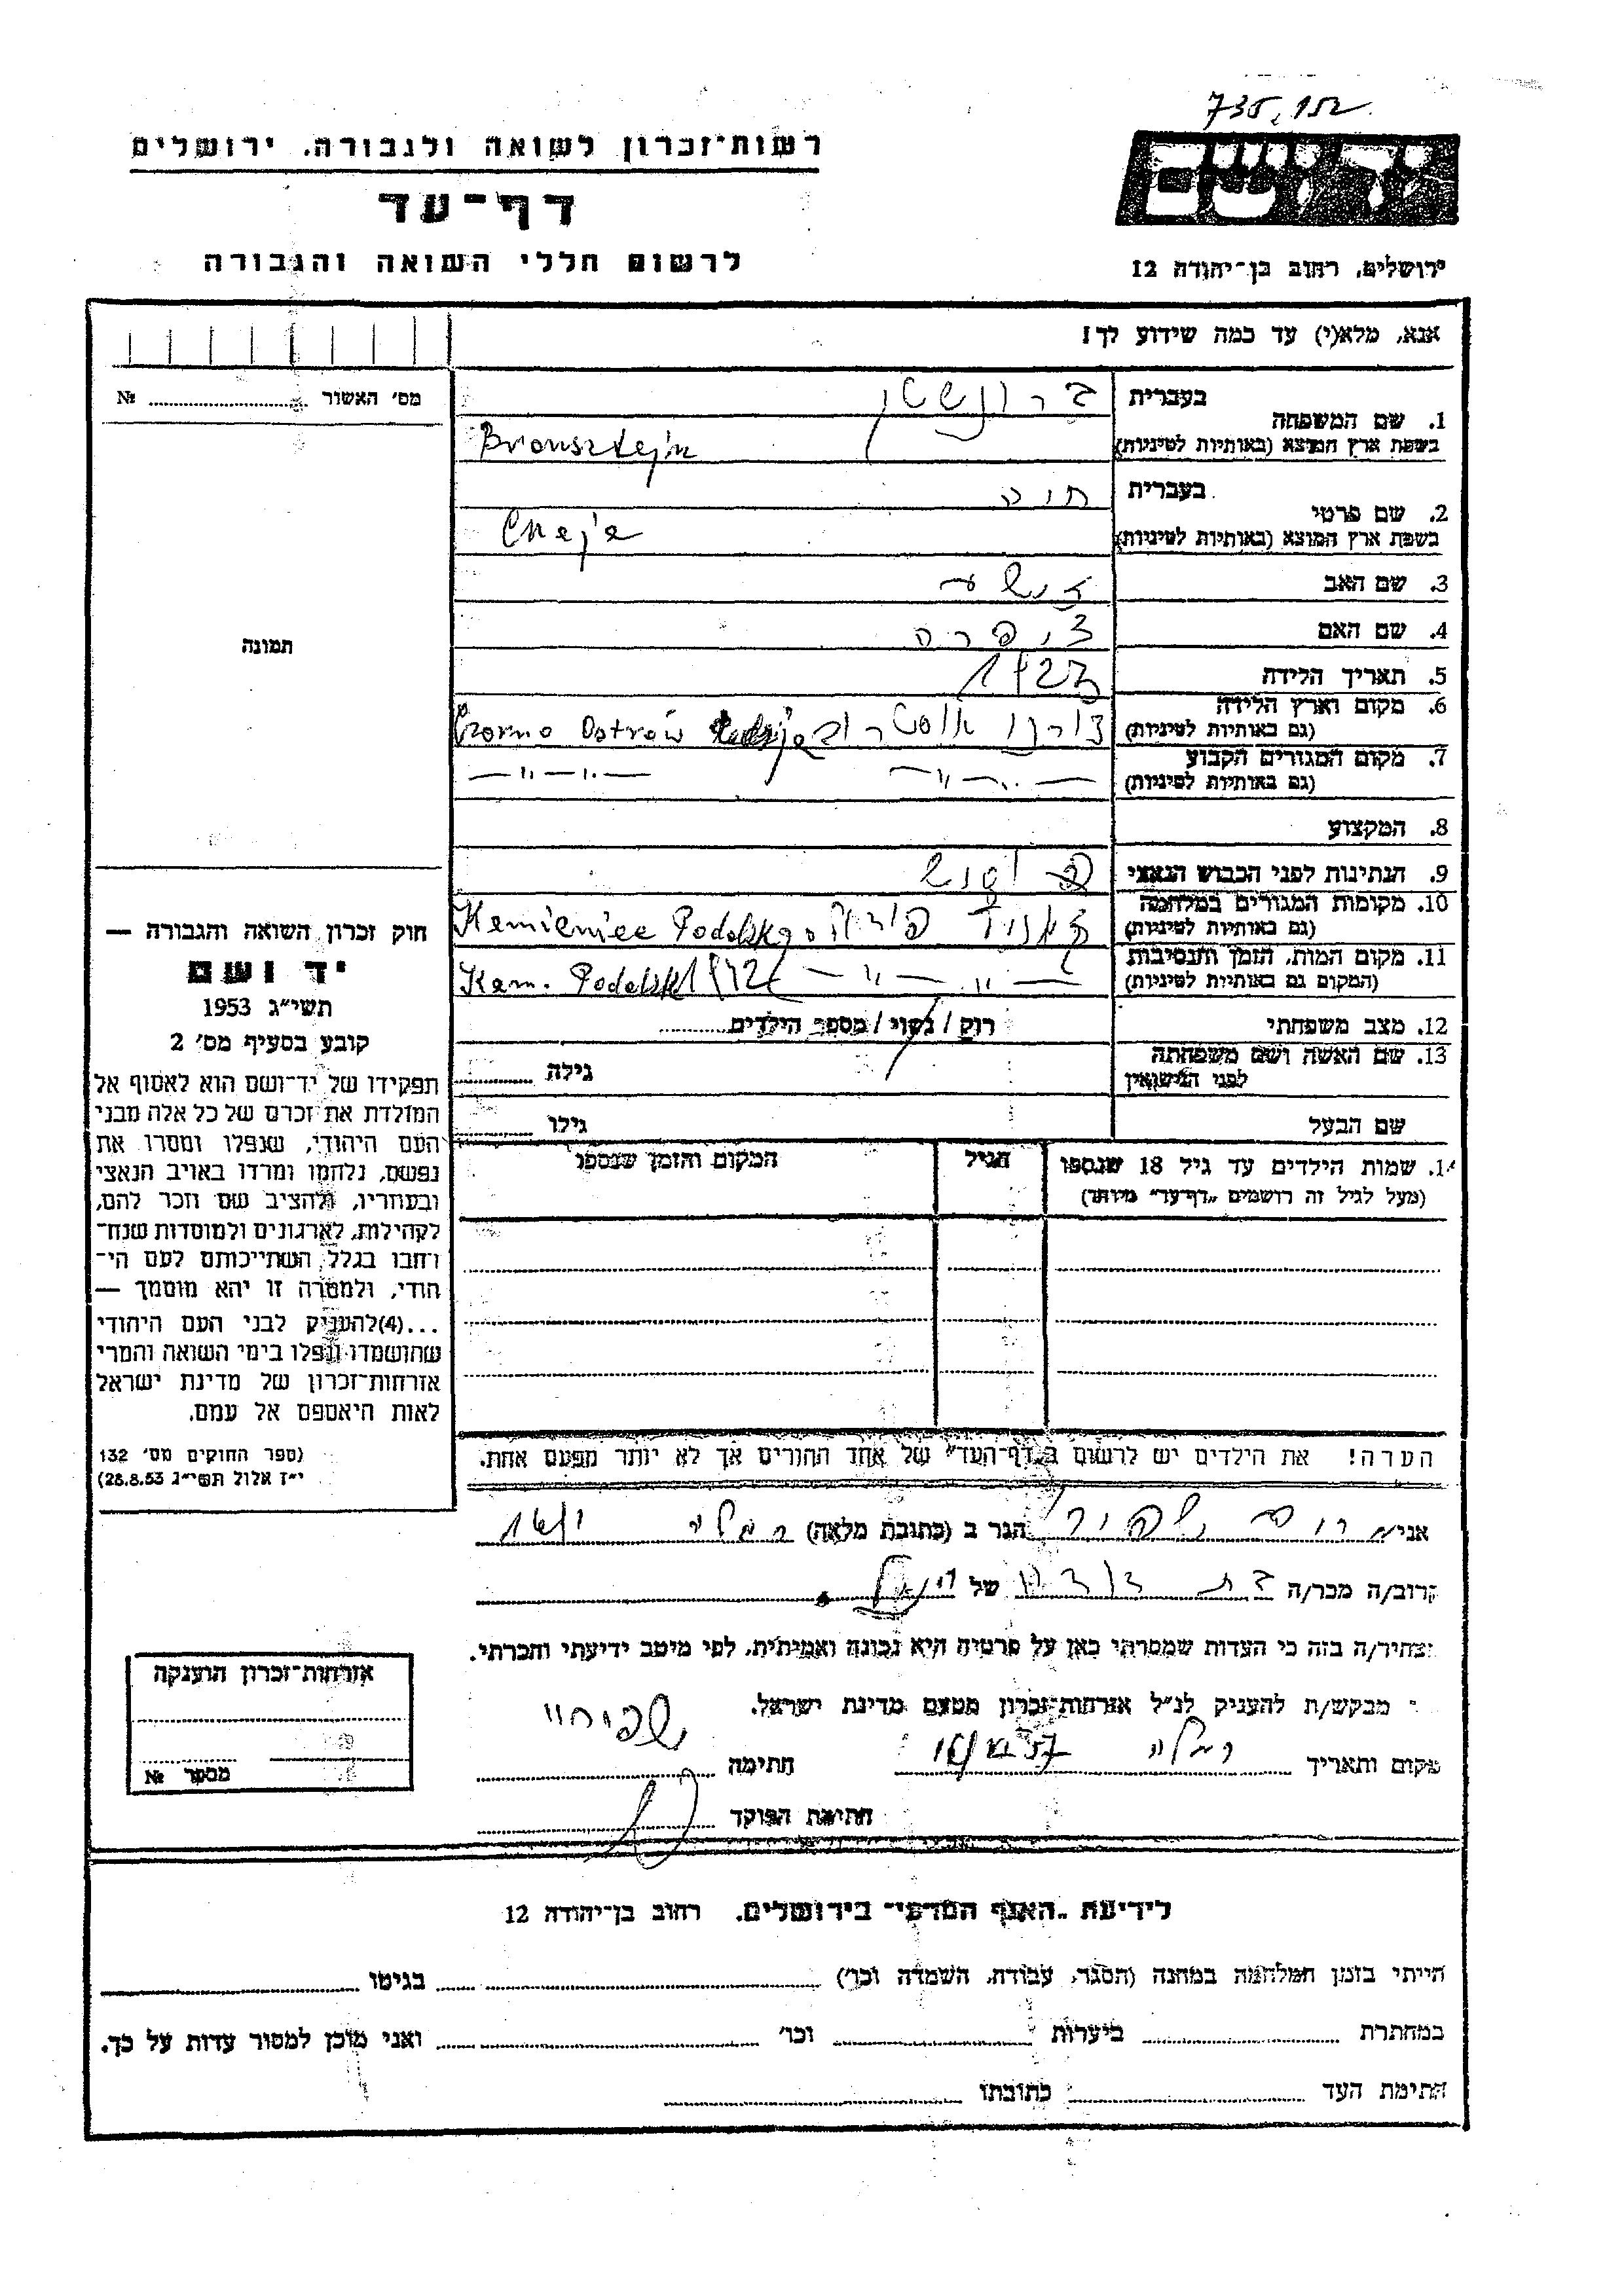 735,152
רשות־זכרון לשואה ולגבורה. ירושלים
דף־עד
לרשום חללי השואה והגבורה
יד ושם
ירושלים, רחוב בן־יהודה 12
אנא, מלא(י) עד כמה שידוע לך!
מס׳ האשור № 
1. שם המשפחה
בעברית
ברונשטין
בשפת ארץ המוצא (באותיות לטיניות)
Bronsztejn
2. שם פרטי
בעברית
חיה
בשפת ארץ המוצא (באותיות לטיניות)
Chaja
3. שם האב
4. שם האם
צפרה
5. תאריך הלידה
1923
6. מקום וארץ הלידה
(גם באותיות לטיניות)
Czorno Ostrów
7. מקום המגורים הקבוע
(גם באותיות לטיניות)
— ״ — ״ —
8. המקצוע
9. הנתינות לפני הכבוש הנאצי
10. מקומות המגורים במלחמה
(גם באותיות לטיניות)
Kamieniec Podolsk
11. מקום המות, הזמן והנסיבות
(המקום גם באותיות לטיניות)
— ״ — ״ — 1942 Kam. Podolsk
12. מצב משפחתי
רוק / נשוי / מספר הילדים
13. שם האשה ושם משפחתה
לפני הנישואין
גילה
שם הבעל
גילו
14. שמות הילדים עד גיל 18 שנספו
(מעל לגיל זה רושמים „דף־עד״ מיוחד)
הגיל
המקום והזמן שנספו
הערה! את הילדים יש לרשום ב„דף־העד״ של אחד ההורים אך לא יותר מפעם אחת.
תמונה
חוק זכרון השואה והגבורה —
יד ושם
תשי״ג 1953
קובע בסעיף מס׳ 2
תפקידו של יד־ושם הוא לאסוף אל
המולדת את זכרם של כל אלה מבני
העם היהודי, שנפלו ומסרו את
נפשם, נלחמו ומרדו באויב הנאצי
ובעוזריו, ולהציב שם וזכר להם,
לקהילות, לארגונים ולמוסדות שנח־
רחבו בגלל השתייכותם לעם הי־
הודי, ולמטרה זו יהא מוסמך —
...(4)להעניק לבני העם היהודי
שהושמדו ונפלו בימי השואה והמרי
אזרחות־זכרון של מדינת ישראל
לאות היאספם אל עמם.
(ספר החוקים מס׳ 132
י״ז אלול תשי״ג 28.8.53)
אני הגר ב (כתובת מלאה) רמלה
קרוב/ה מכר/ה בת דודה של
מצהיר/ה בזה כי העדות שמסרתי כאן על פרטיה היא נכונה ואמיתית, לפי מיטב ידיעתי והכרתי.
מבקש/ת להעניק לנ״ל אזרחות־זכרון מטעם מדינת ישראל.
מקום ותאריך רמלה
חתימה
חתימת הפוקד
אזרחות־זכרון הוענקה
מספר №
לידיעת „האגף המדעי״ בירושלים. רחוב בן־יהודה 12
הייתי בזמן המלחמה במחנה (הסגר, עבודת, השמדה וכו׳) בגיטו
במחתרת ביערות וכו׳ ואני מוכן למסור עדות על כך.
חתימת העד כתובתו